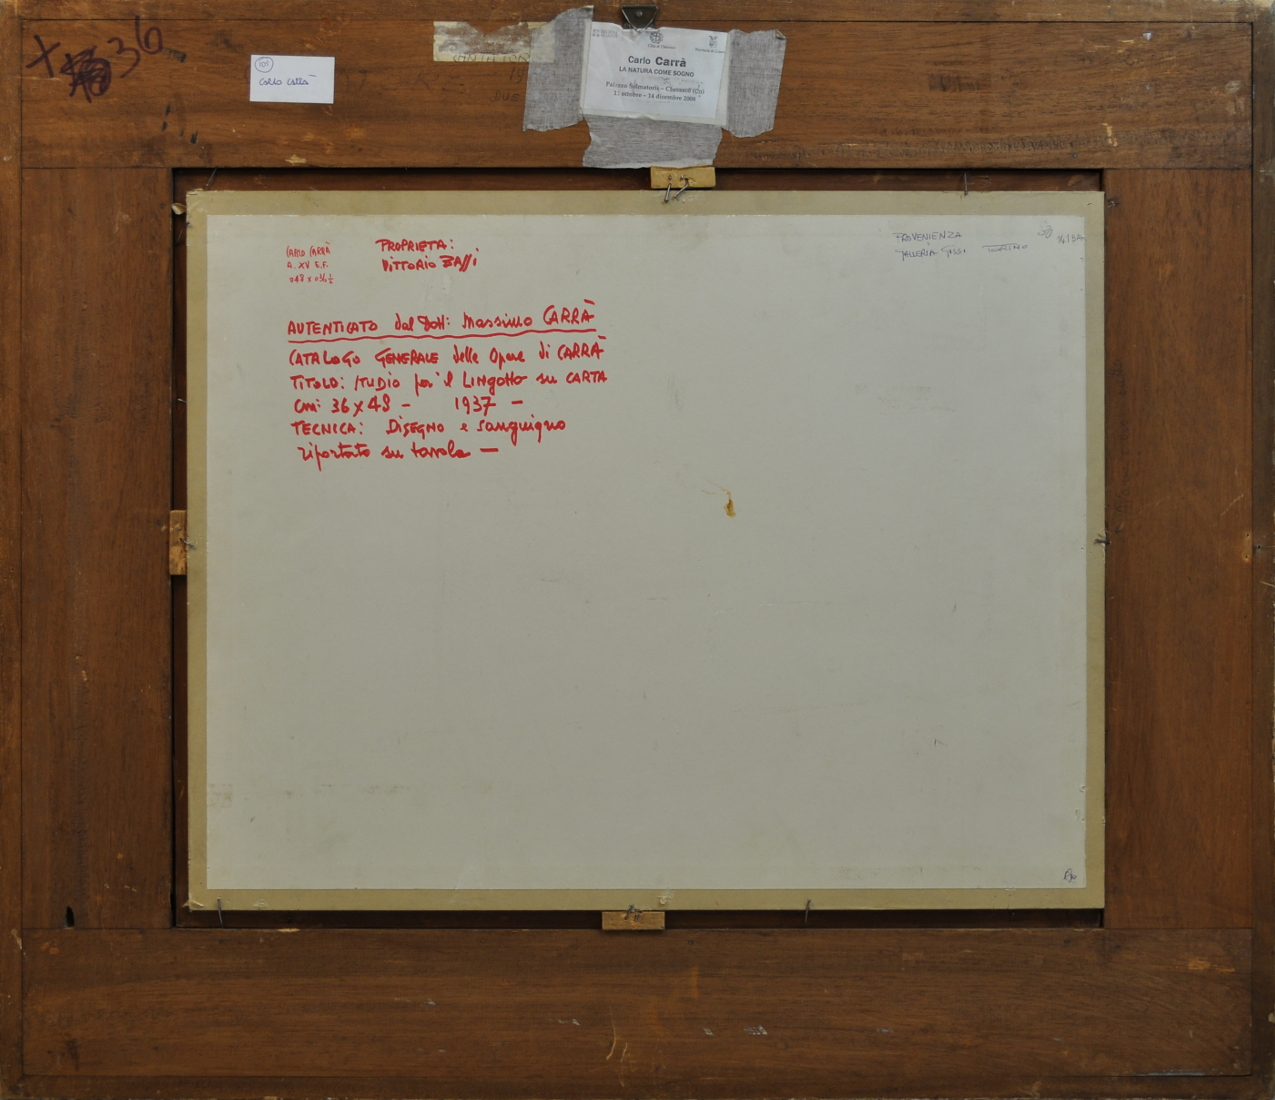 36
109
Carlo Carrà
Carlo Carrà
LA NATURA COME SOGNO
Palazzo Salmatoris – Cherasco (Cn)
11 ottobre – 14 dicembre 2008
CARLO CARRÀ
A. XV E.F.
PROPRIETÀ:
VITTORIO BASSI
PROVENIENZA
GALLERIA GISSI TORINO
AUTENTICATO dal Dott: Massimo CARRÀ
CATALOGO GENERALE delle Opere di CARRÀ
TITOLO: STUDIO per il LINGOTTO su CARTA
Cm: 36x48 - 1937 -
TECNICA: DISEGNO e sanguigno
riportato su tavola —